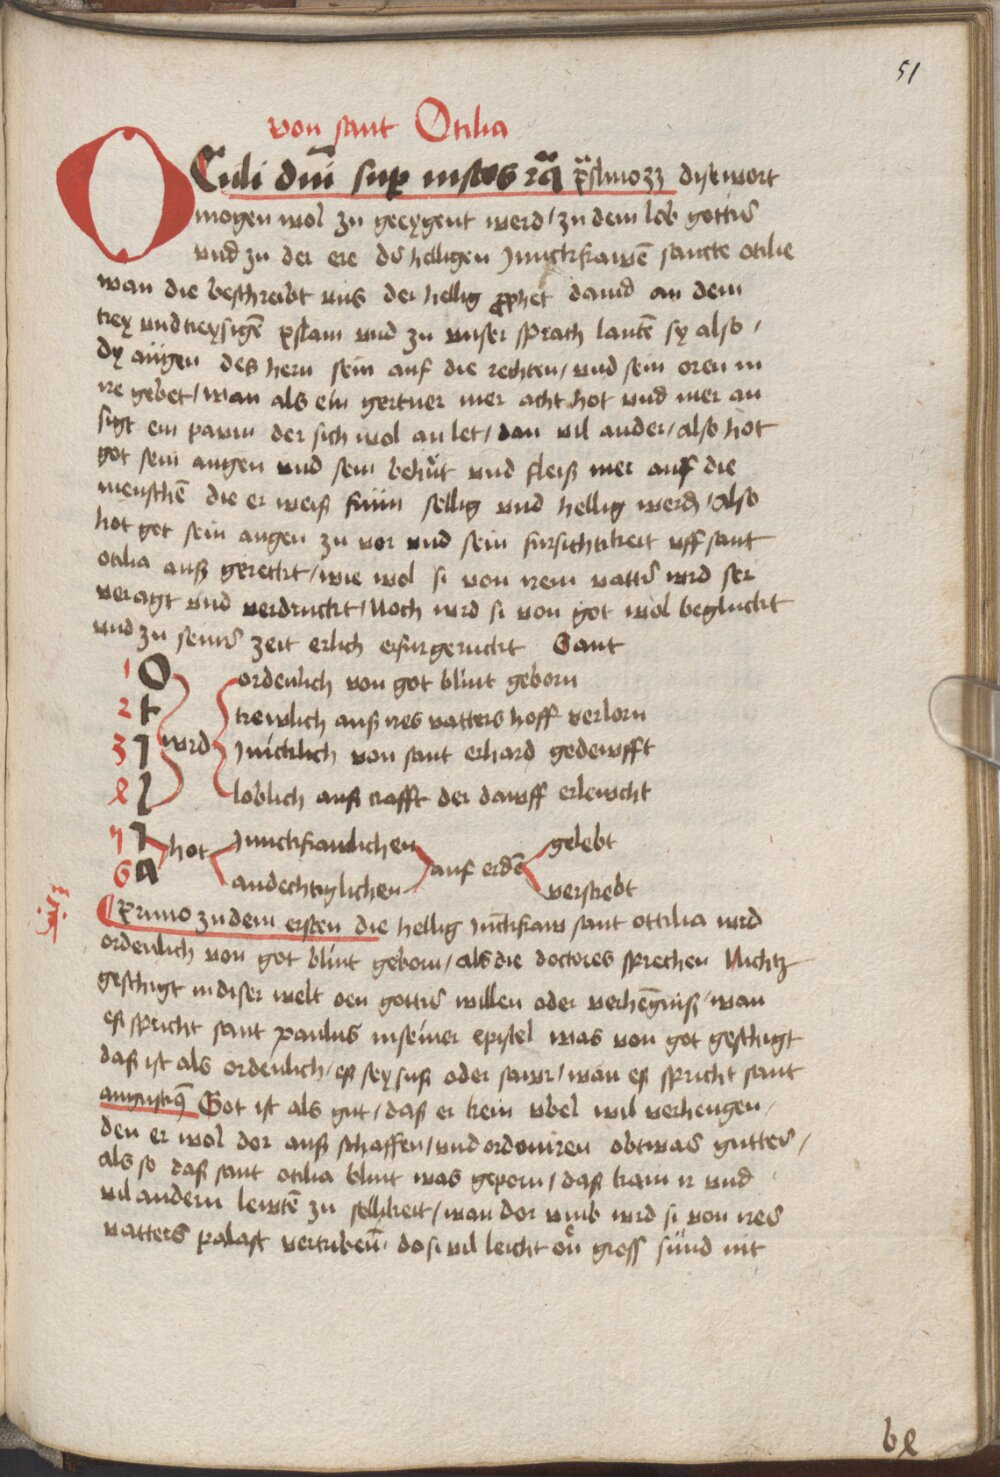 51
von sant Otilia
OCuli dnī sup iustos rc̄ā p̄salmo 33 dise wort
mogen wol zu geeygent werd / zu dem lob gottis
vnd zu der ere der helligen Junckfrawē sancte otilie
wan die beschreibt vns der hellig prophet dauid an dem
trey vnd treysigē psalm vnd zu vnser sprach lautē sy also /
dy augen des hern sein auf die rechten / vnd sein oren in
ire gebet / wan als ein gertner mer acht hot vnd mer an
sigt ein pawm der sich wol an let / dan vil ander / also hot
got sein augen vnd sein behut vnd fleiß mer auf die
menschē die er weiß sellig vnd hellig werdē / also
hot got sein augen zu vor vnd sein fursichtikeit vff sant
otilia auß gereckt / wie wol si von irem vattis wrd ser
veragt vnd verdruckt / Noch wrd si von got wol begluckt
vnd zu seinis zeit erlich erfurgeruckt Sant
1 O ordenlich von got blint geborn
2 t trewlich auß ires vatters hoff verlorn
3 I wrd Junicklich von sant erhard gedewfft
4 l loblich auß crafft der dawff erlewcht
5 I hot Junckfraulichen auf erdē gelebt
6 a andechtiglichen verstrebt
Primo zu dem ersten die hellig Junckfraw sant ottilia wrd
ordenlich von got blint geborn / als die doctores sprechen Nichtz
geschigt in diser welt oen gottis willen oder verhēgniß / wan
eß spricht sant paulus in seiner epistel was von got geschigt
daß ist als ordenlich / eß sey suß oder sawr / wan eß spricht sant
augustinꝰ Got ist als gut / daß er kein vbel wil verhengen /
den er wol dor auß schaffen / vnd ordoniren obtwas guttes /
als so daß sant otilia blint was geporn / daß kam ir vnd
vil andern lewtē zu sellikeit / wan dor vmb wrd si von ires
vatters palast vertribenn̄ / do si vil leicht on gross sünd nit
b4